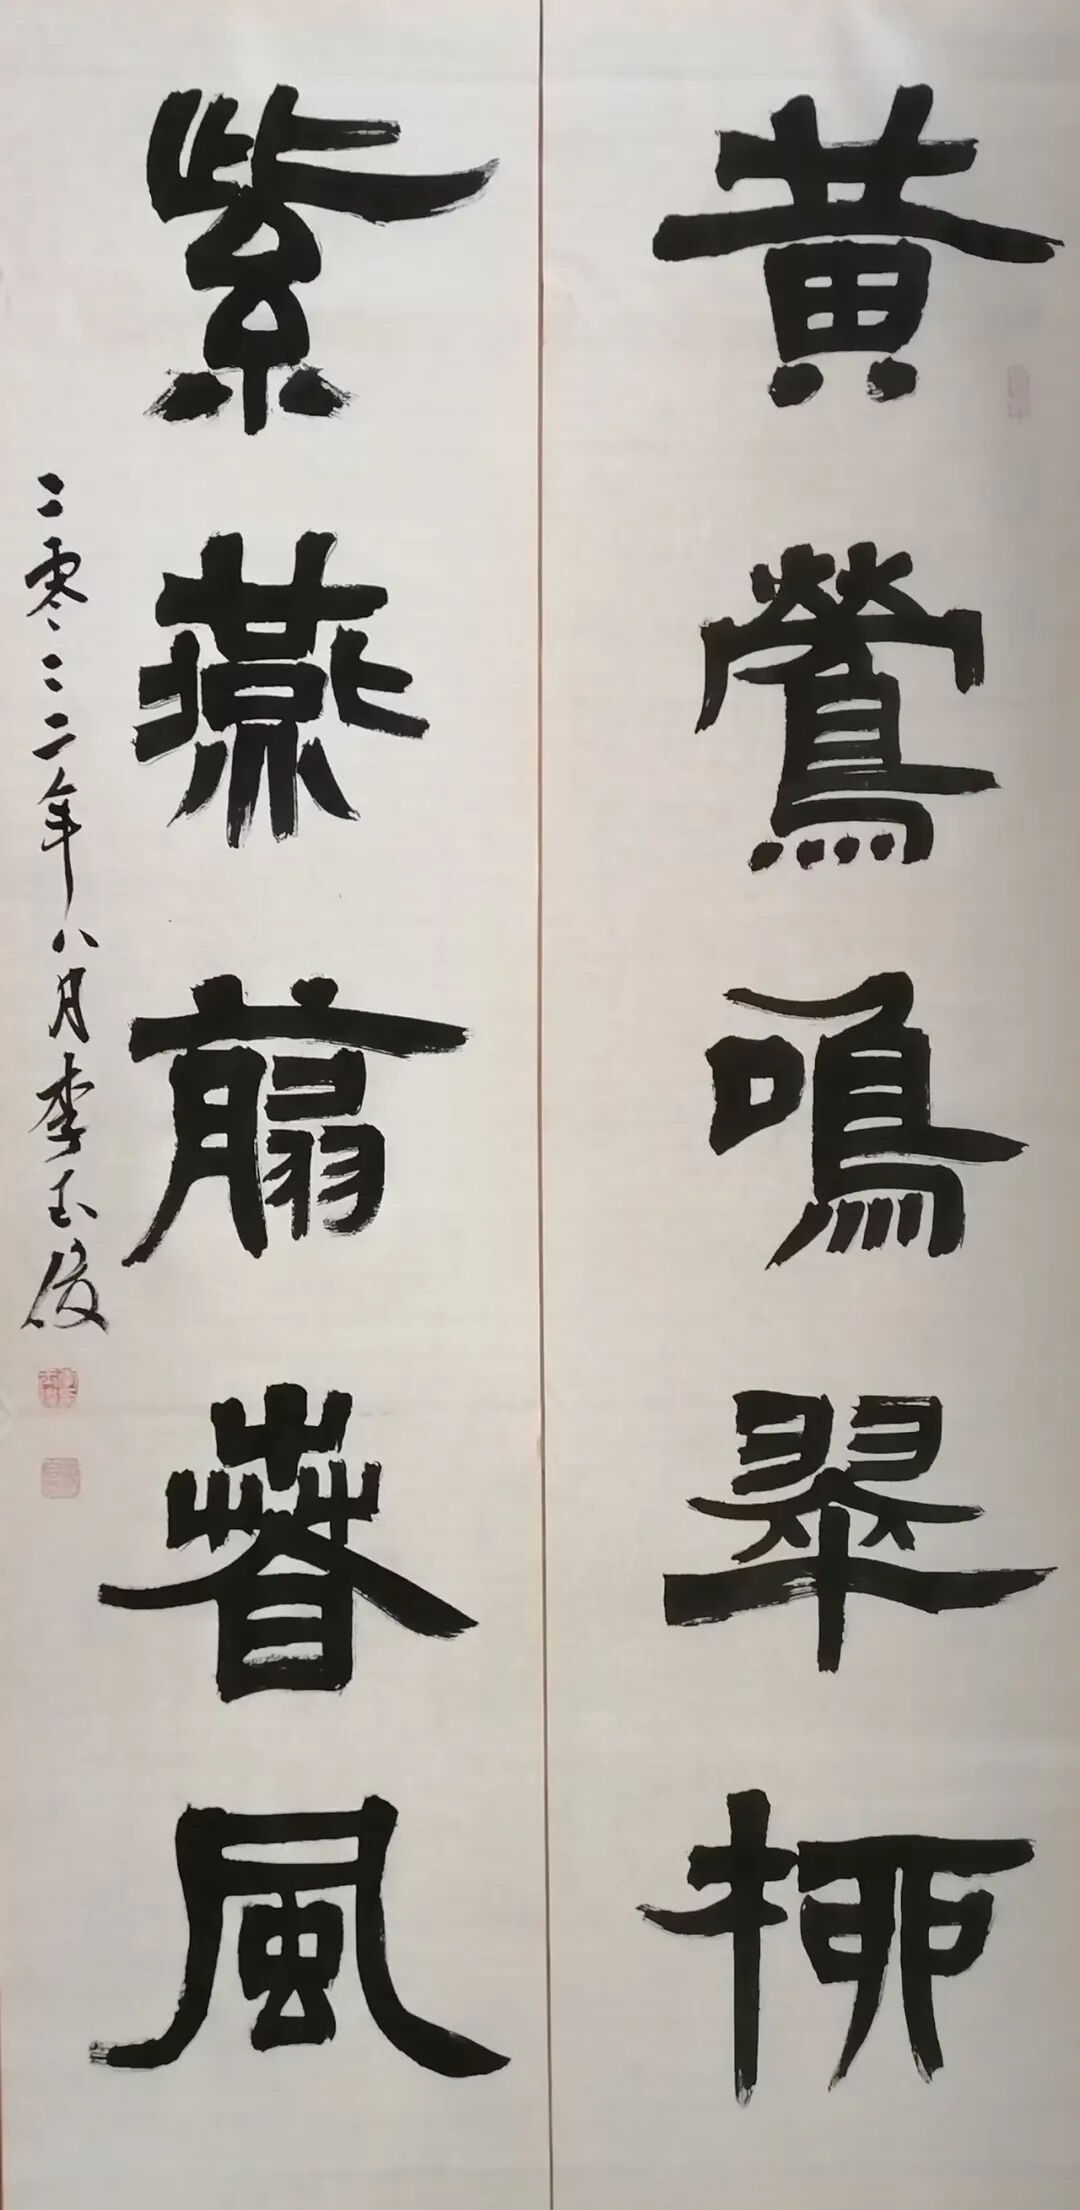 黄鶯鳴翠柳
紫燕翦春風
二零二二年八月李玉俊